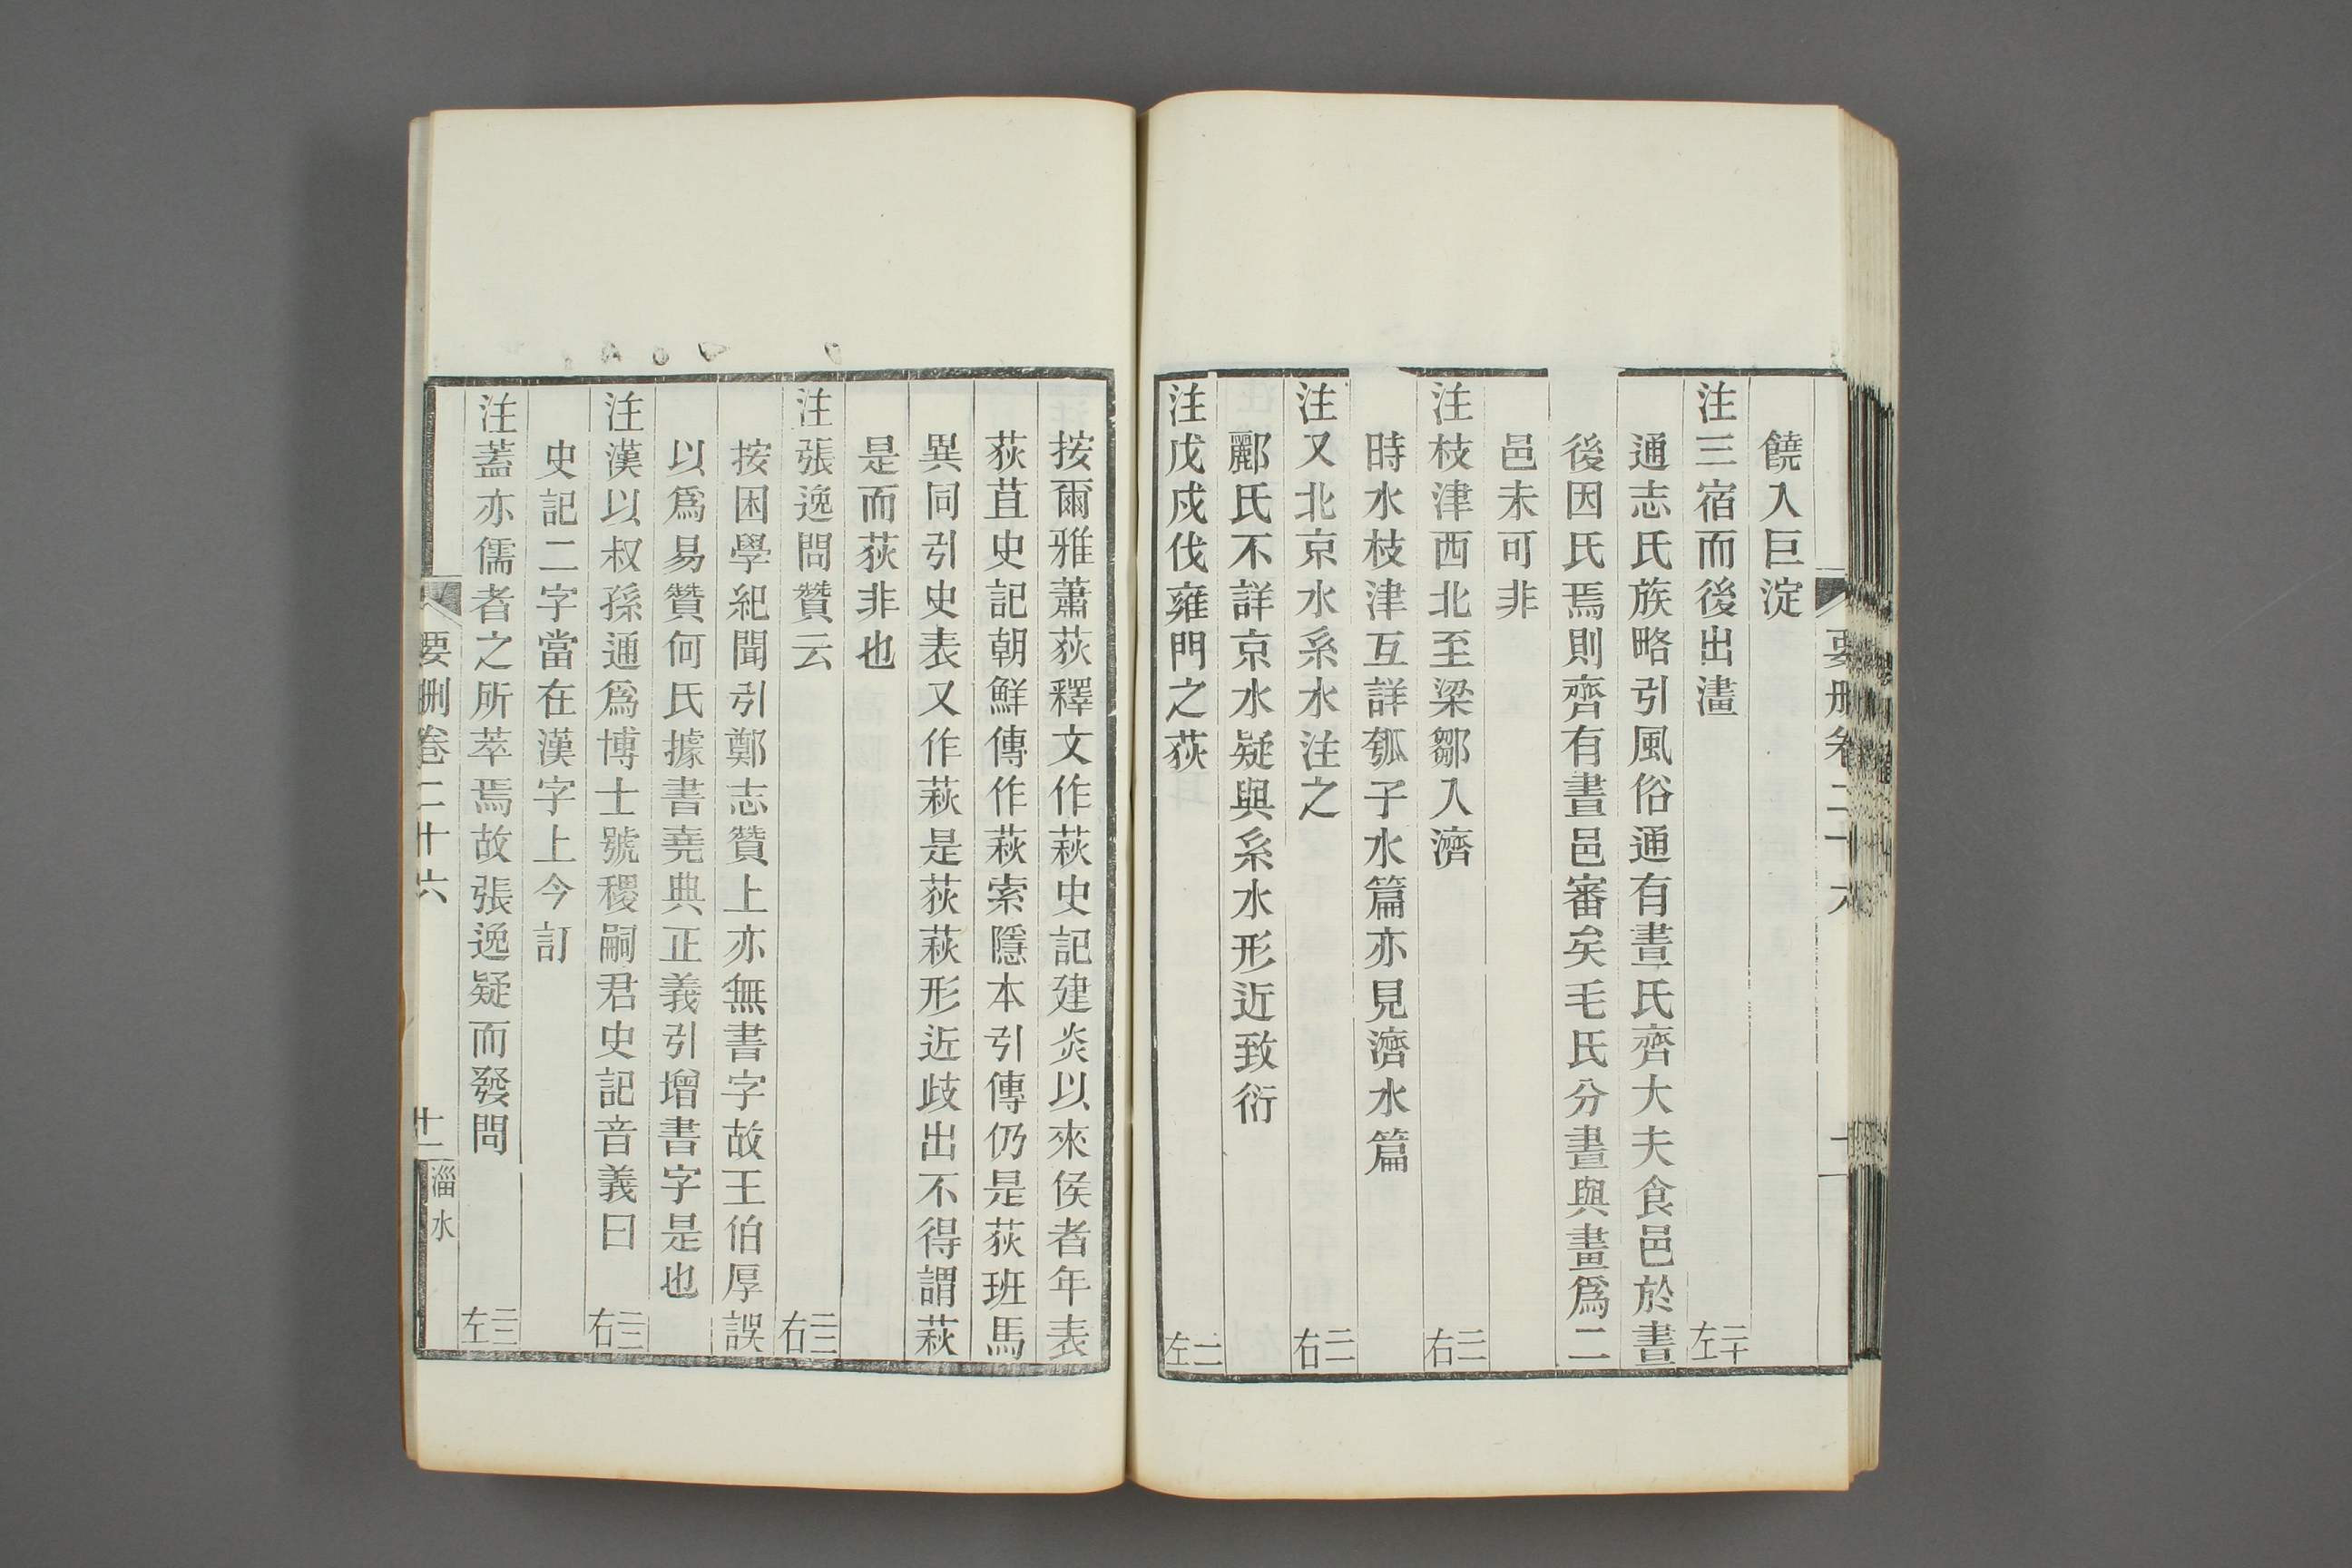 饒入巨淀
注三宿而後出澅 二十左
通志氏族略引風俗通有晝氏齊大夫食邑於晝
後因氏焉則齊有晝邑審矣毛氏分晝與畫爲二
邑未可非
注枝津西北至梁鄒入濟 二二右
時水枝津互詳瓠子水篇亦見濟水篇
注又北京水系水注之 二二右
酈氏不詳京水疑與系水形近致衍
注戊戍伐雍門之荻 二二左
要刪卷二十六 十一
按爾雅蕭荻釋文作萩史記建炎以來侯者年表
荻苴史記朝鮮傳作萩索隱本引傳仍是荻班馬
異同引史表又作萩是荻萩形近歧出不得謂萩
是而荻非也
注張逸問贊云 二三右
按困學紀聞引鄭志贊上亦無書字故王伯厚誤
以爲易贊何氏據書堯典正義引增書字是也
注漢以叔孫通爲博士號稷嗣君史記音義曰 二三右
史記二字當在漢字上今訂
注蓋亦儒者之所萃焉故張逸疑而發問 二三左
要刪卷二十六 十一 淄水